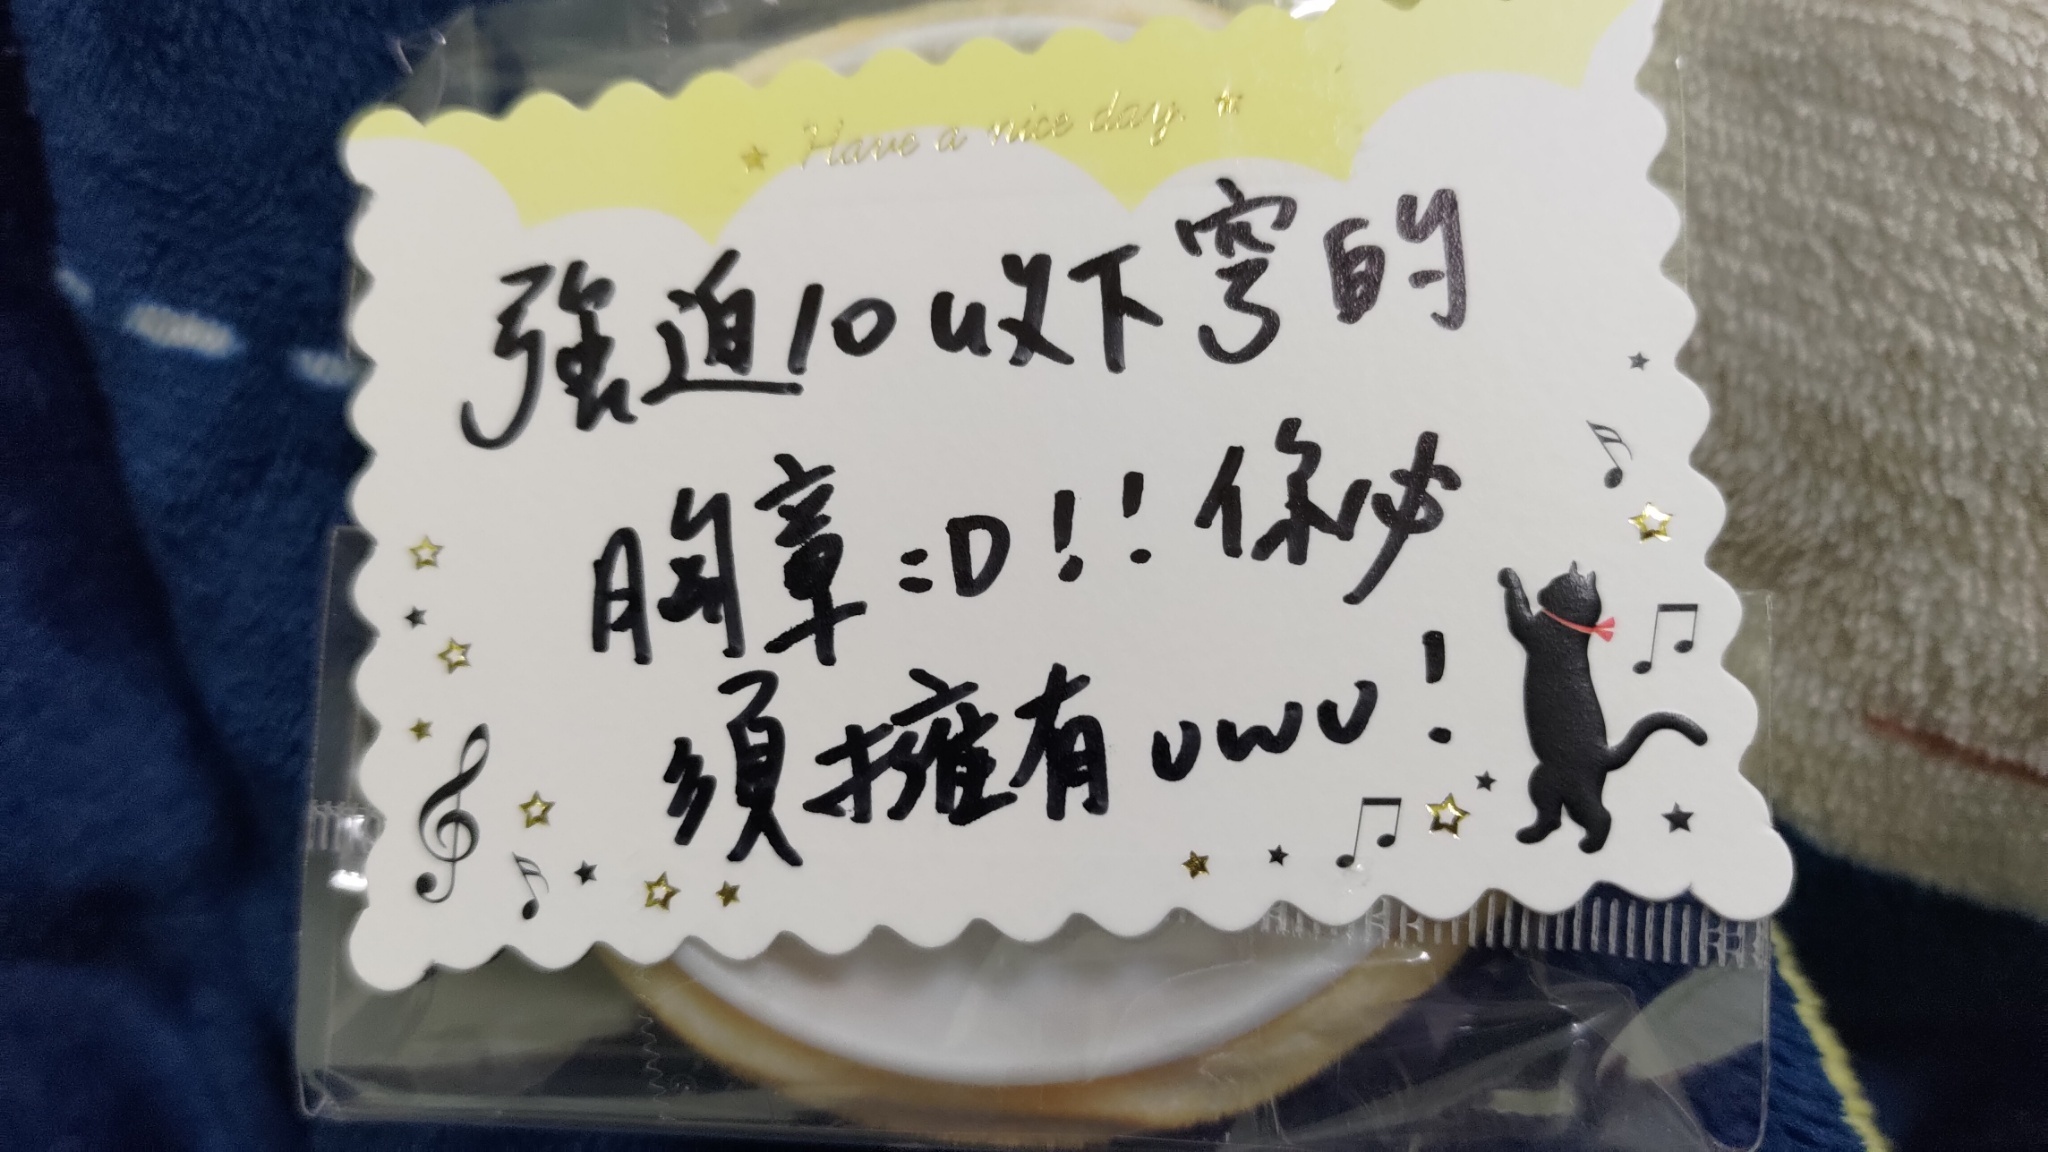 Have a nice day.
強迫10収下穹的
胸章=D!!你必
須擁有uwu!